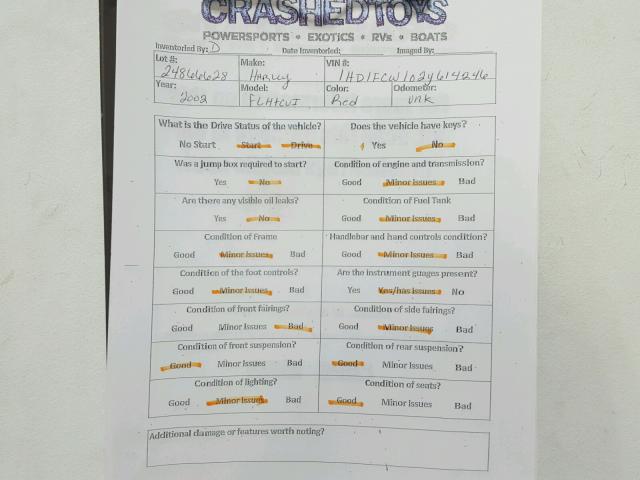 CRASHEDTOYS
POWERSPORTS • EXOTICS • RVs • BOATS
Inventoried By: D Date Inventoried: Imaged By:
Lot #: Make: VIN #:
24866628 Harley 1HD1FCW102Y614246
Year: Model: Color: Odometer:
2002 FLHTCUI Red unk
What is the Drive Status of the vehicle? Does the vehicle have keys?
No Start Start Drive Yes No
Was a jump box required to start? Condition of engine and transmission?
Yes No Good Minor issues Bad
Are there any visible oil leaks? Condition of Fuel Tank
Yes No Good Minor issues Bad
Condition of Frame Handlebar and hand controls condition?
Good Minor Issues Bad Good Minor issues Bad
Condition of the foot controls? Are the instrument guages present?
Good Minor Issues Bad Yes Yes/has issues No
Condition of front fairings? Condition of side fairings?
Good Minor Issues Bad Good Minor Issues Bad
Condition of front suspension? Condition of rear suspension?
Good Minor Issues Bad Good Minor Issues Bad
Condition of lighting? Condition of seats?
Good Minor Issues Bad Good Minor Issues Bad
Additional damage or features worth noting?